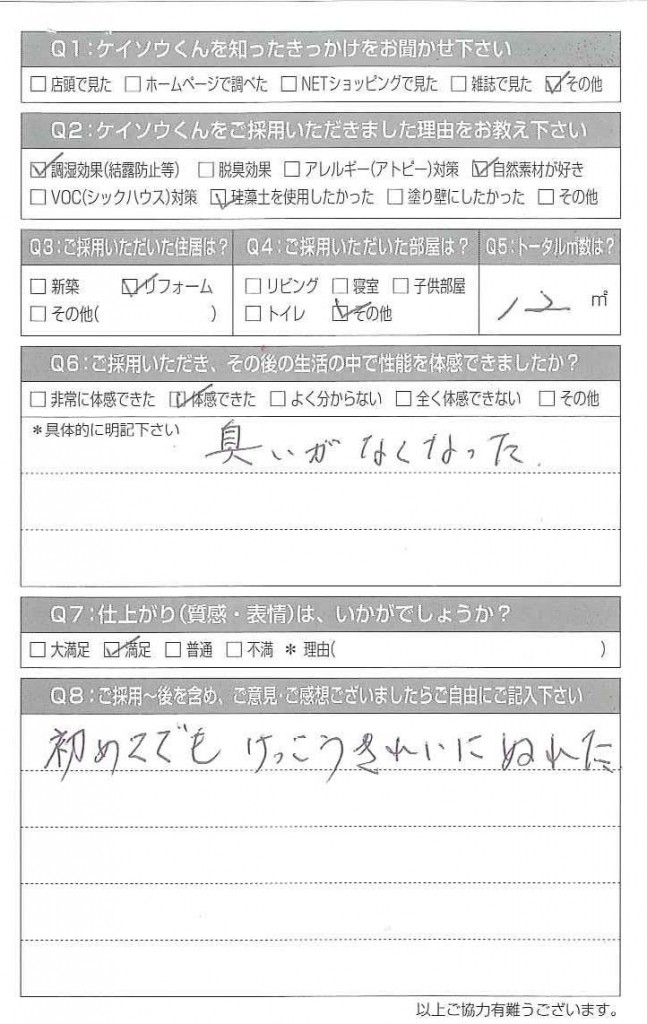 Q1:ケイソウくんを知ったきっかけをお聞かせ下さい
□店頭で見た □ホームページで調べた □NETショッピングで見た □雑誌で見た ☑その他
Q2:ケイソウくんをご採用いただきました理由をお教え下さい
☑調湿効果(結露防止等) □脱臭効果 □アレルギー(アトピー)対策 ☑自然素材が好き
□VOC(シックハウス)対策 ☑珪藻土を使用したかった □塗り壁にしたかった □その他
Q3:ご採用いただいた住居は? Q4:ご採用いただいた部屋は? Q5:トータル㎡数は?
□新築 ☑リフォーム □リビング □寝室 □子供部屋 12 ㎡
□その他( ) □トイレ ☑その他
Q6:ご採用いただき、その後の生活の中で性能を体感できましたか?
□非常に体感できた ☑体感できた □よく分からない □全く体感できない □その他
*具体的に明記下さい 臭いがなくなった.
Q7:仕上がり(質感・表情)は、いかがでしょうか?
□大満足 ☑満足 □普通 □不満 *理由( )
Q8:ご採用～後を含め、ご意見・ご感想ございましたらご自由にご記入下さい
初めてでもけっこうきれいにぬれた
以上ご協力有難うございます。